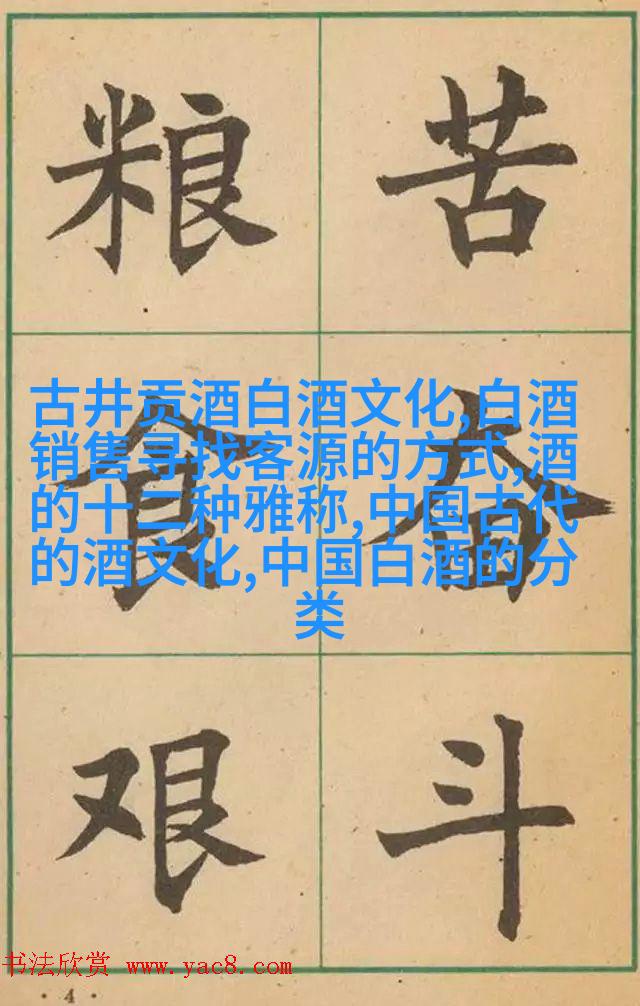 粮食艰
苦奋斗
古井贡酒白酒文化,白酒
销售寻找客源的方式,酒
的十二种雅称,中国古代
的酒文化,中国白酒的分
类
书法欣赏 www.yac8.com
· 4 ·